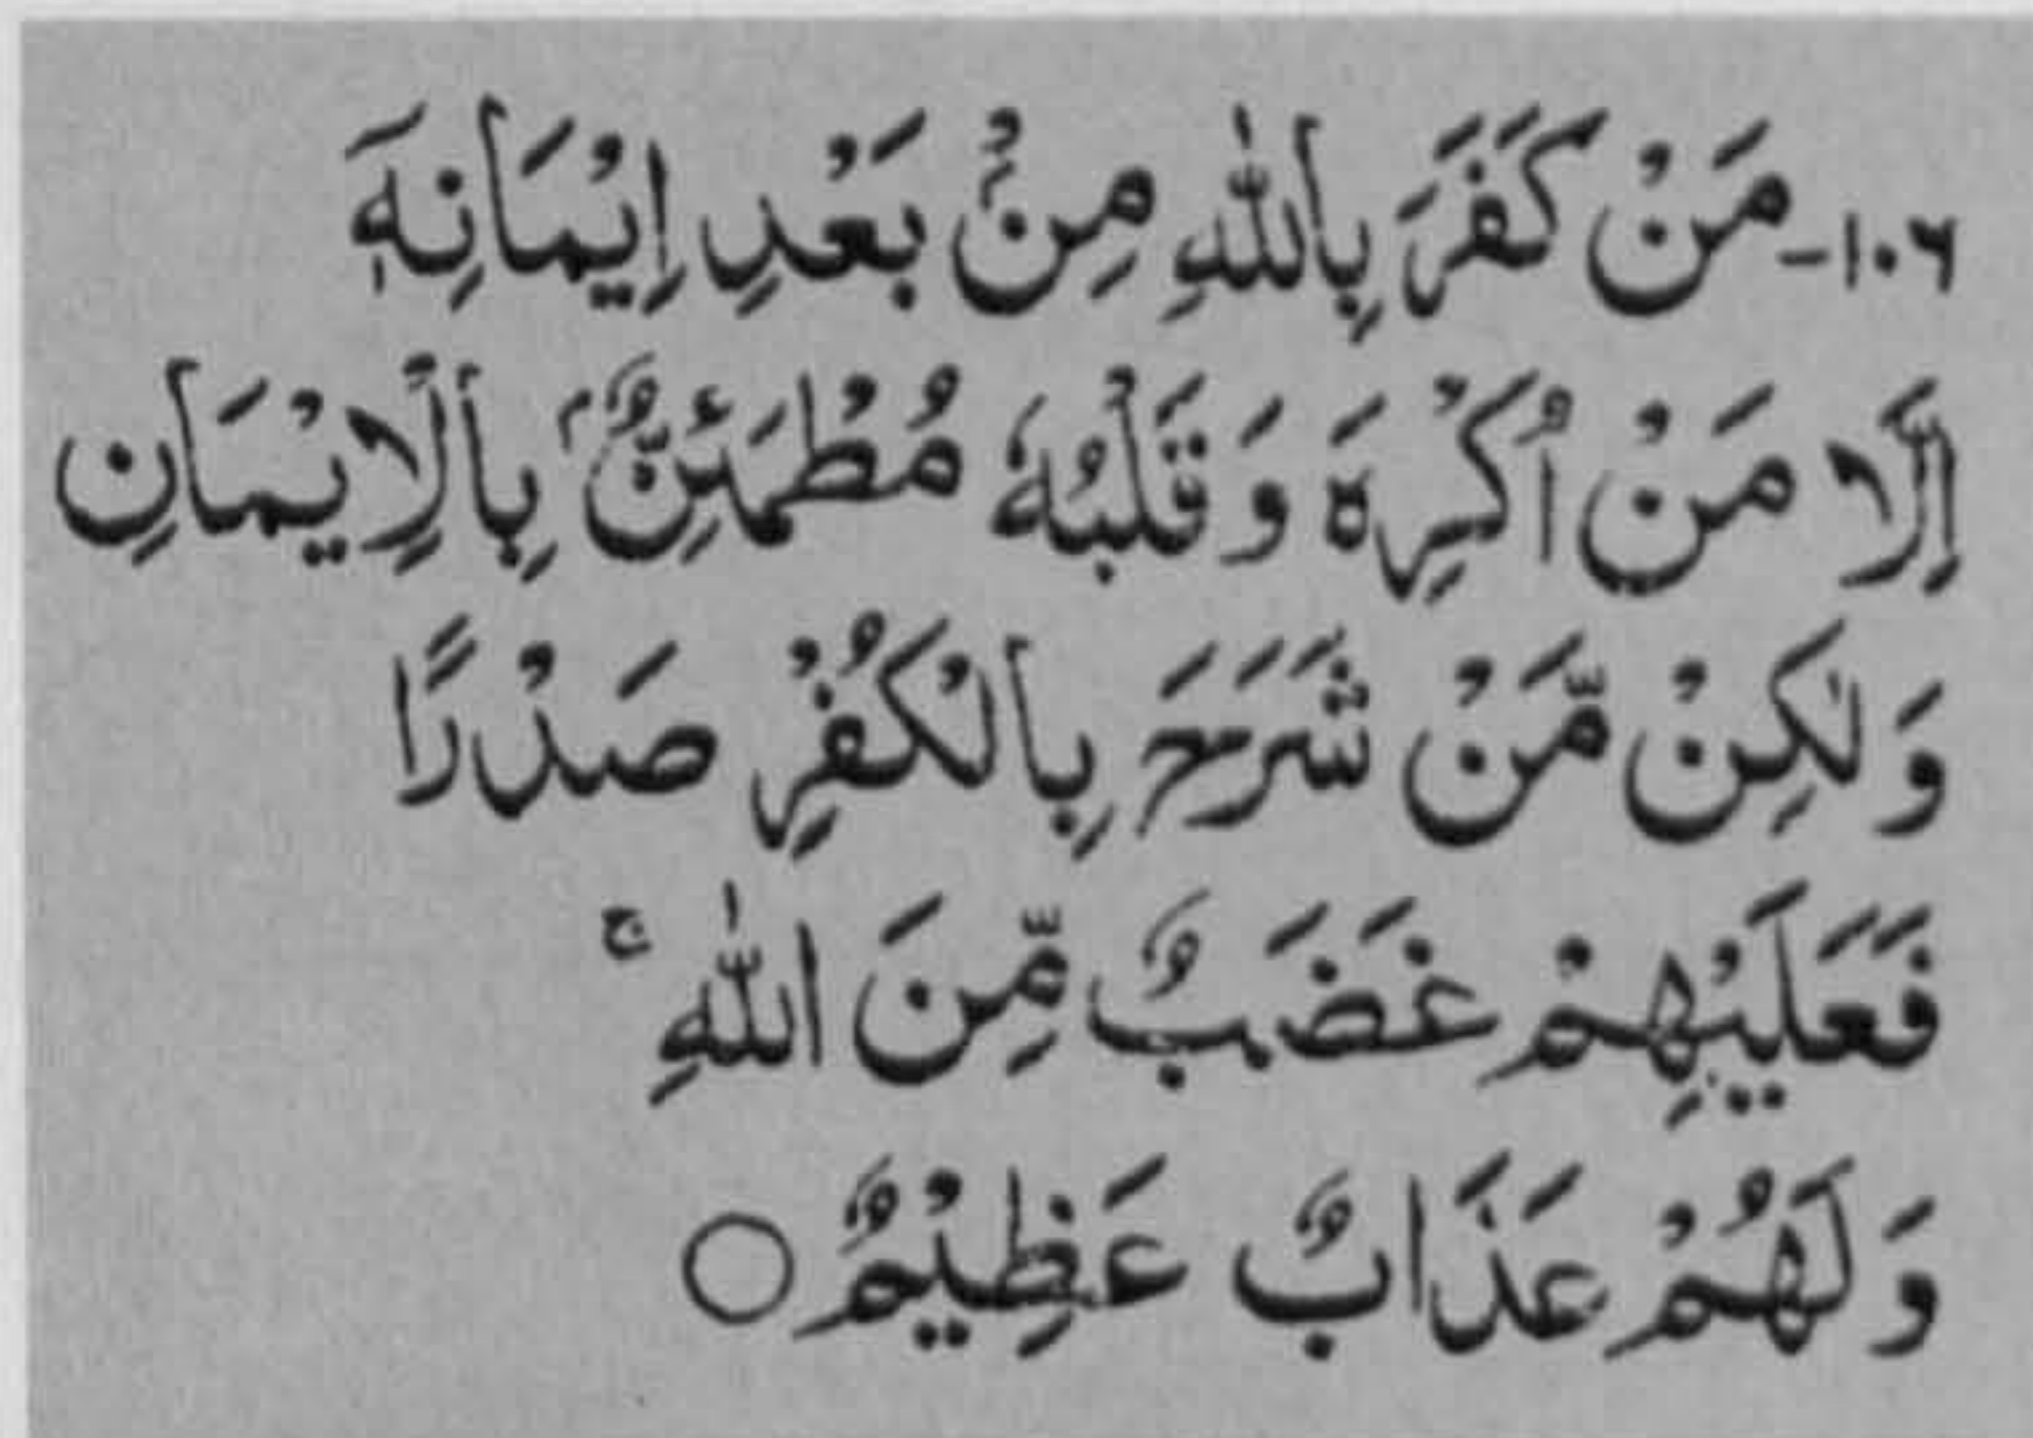 ١٠٦- مَنْ كَفَرَ بِاللّٰهِ مِنْۢ بَعْدِ اِيْمَانِهٖٓ
اِلَّا مَنْ اُكْرِهَ وَ قَلْبُهٗ مُطْمَئِنٌّۢ بِالْاِيْمَانِ
وَلٰكِنْ مَّنْ شَرَحَ بِالْكُفْرِ صَدْرًا
فَعَلَيْهِمْ غَضَبٌ مِّنَ اللّٰهِ ۚ
وَ لَهُمْ عَذَابٌ عَظِيْمٌ ○